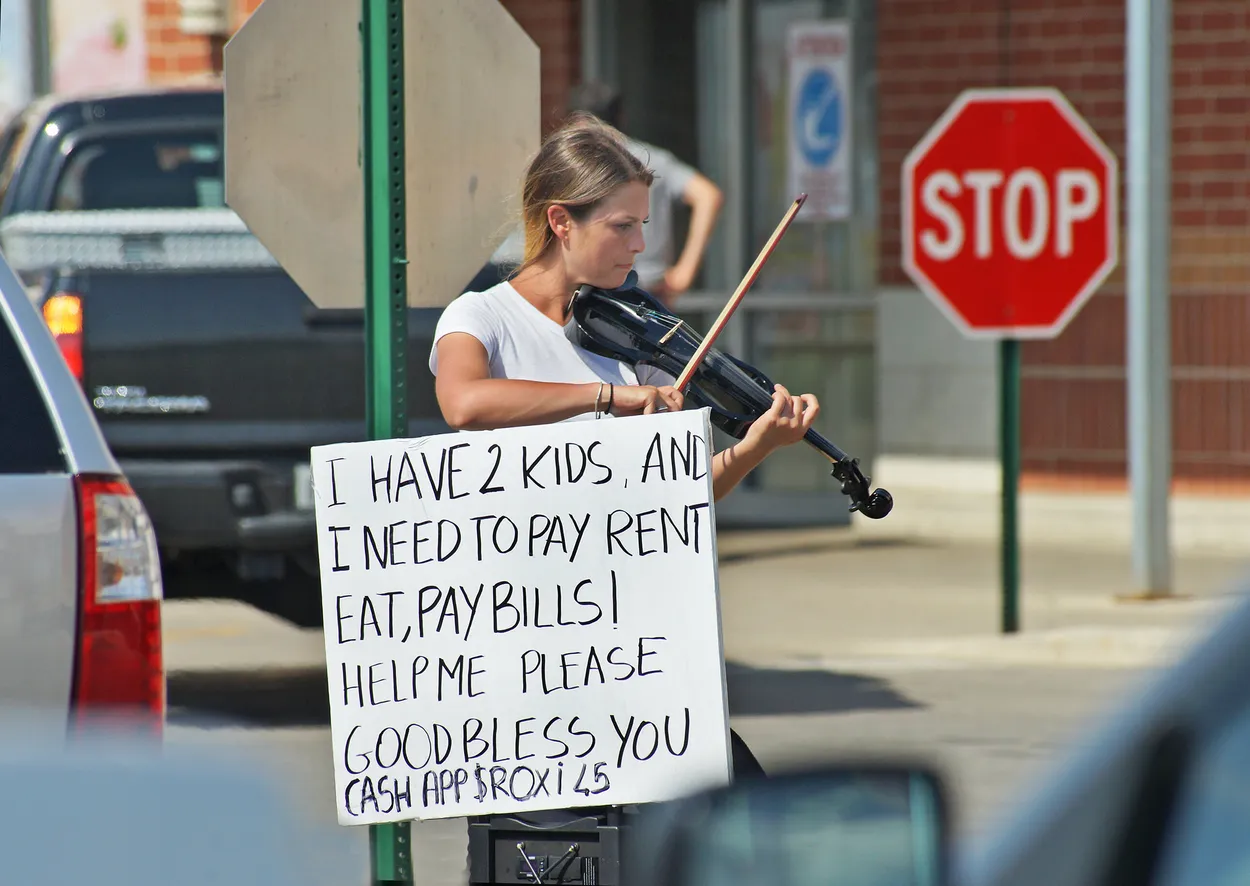 STOP
I HAVE 2 KIDS, AND
I NEED TO PAY RENT
EAT, PAY BILLS!
HELP ME PLEASE
GOOD BLESS YOU
CASH APP $ROXI45